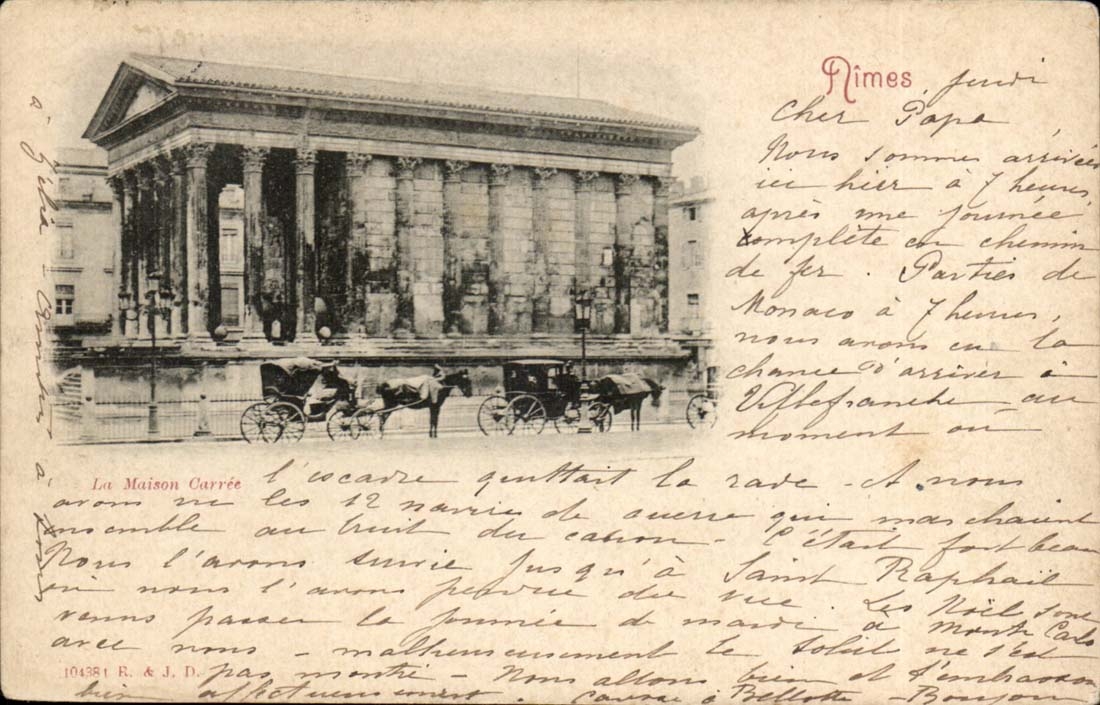 Nîmes jeudi
Cher Papa
Nous sommes arrivées
ici hier à 7 heures,
après une journée
complète en chemin
de fer. Parties de
Monaco à 7 heures,
nous avons eu la
chance d'arriver à
Villefranche au
moment où
La Maison Carrée
l'escadre quittait la rade - A nous
avons vu les 12 navires de guerre qui marchaient
ensemble au bruit du canon - C'était fort beau
Nous l'avons suivie jusqu'à Saint Raphaël
où nous l'avons perdue de vue. Les Noël sont
venus passer la journée de mardi à Monte Carlo
avec nous - malheureusement le soleil ne s'est
104381 E. & J. D.
pas montré - Nous allons bien et t'embrassons
bien affectueusement. à - Bonjour
à à